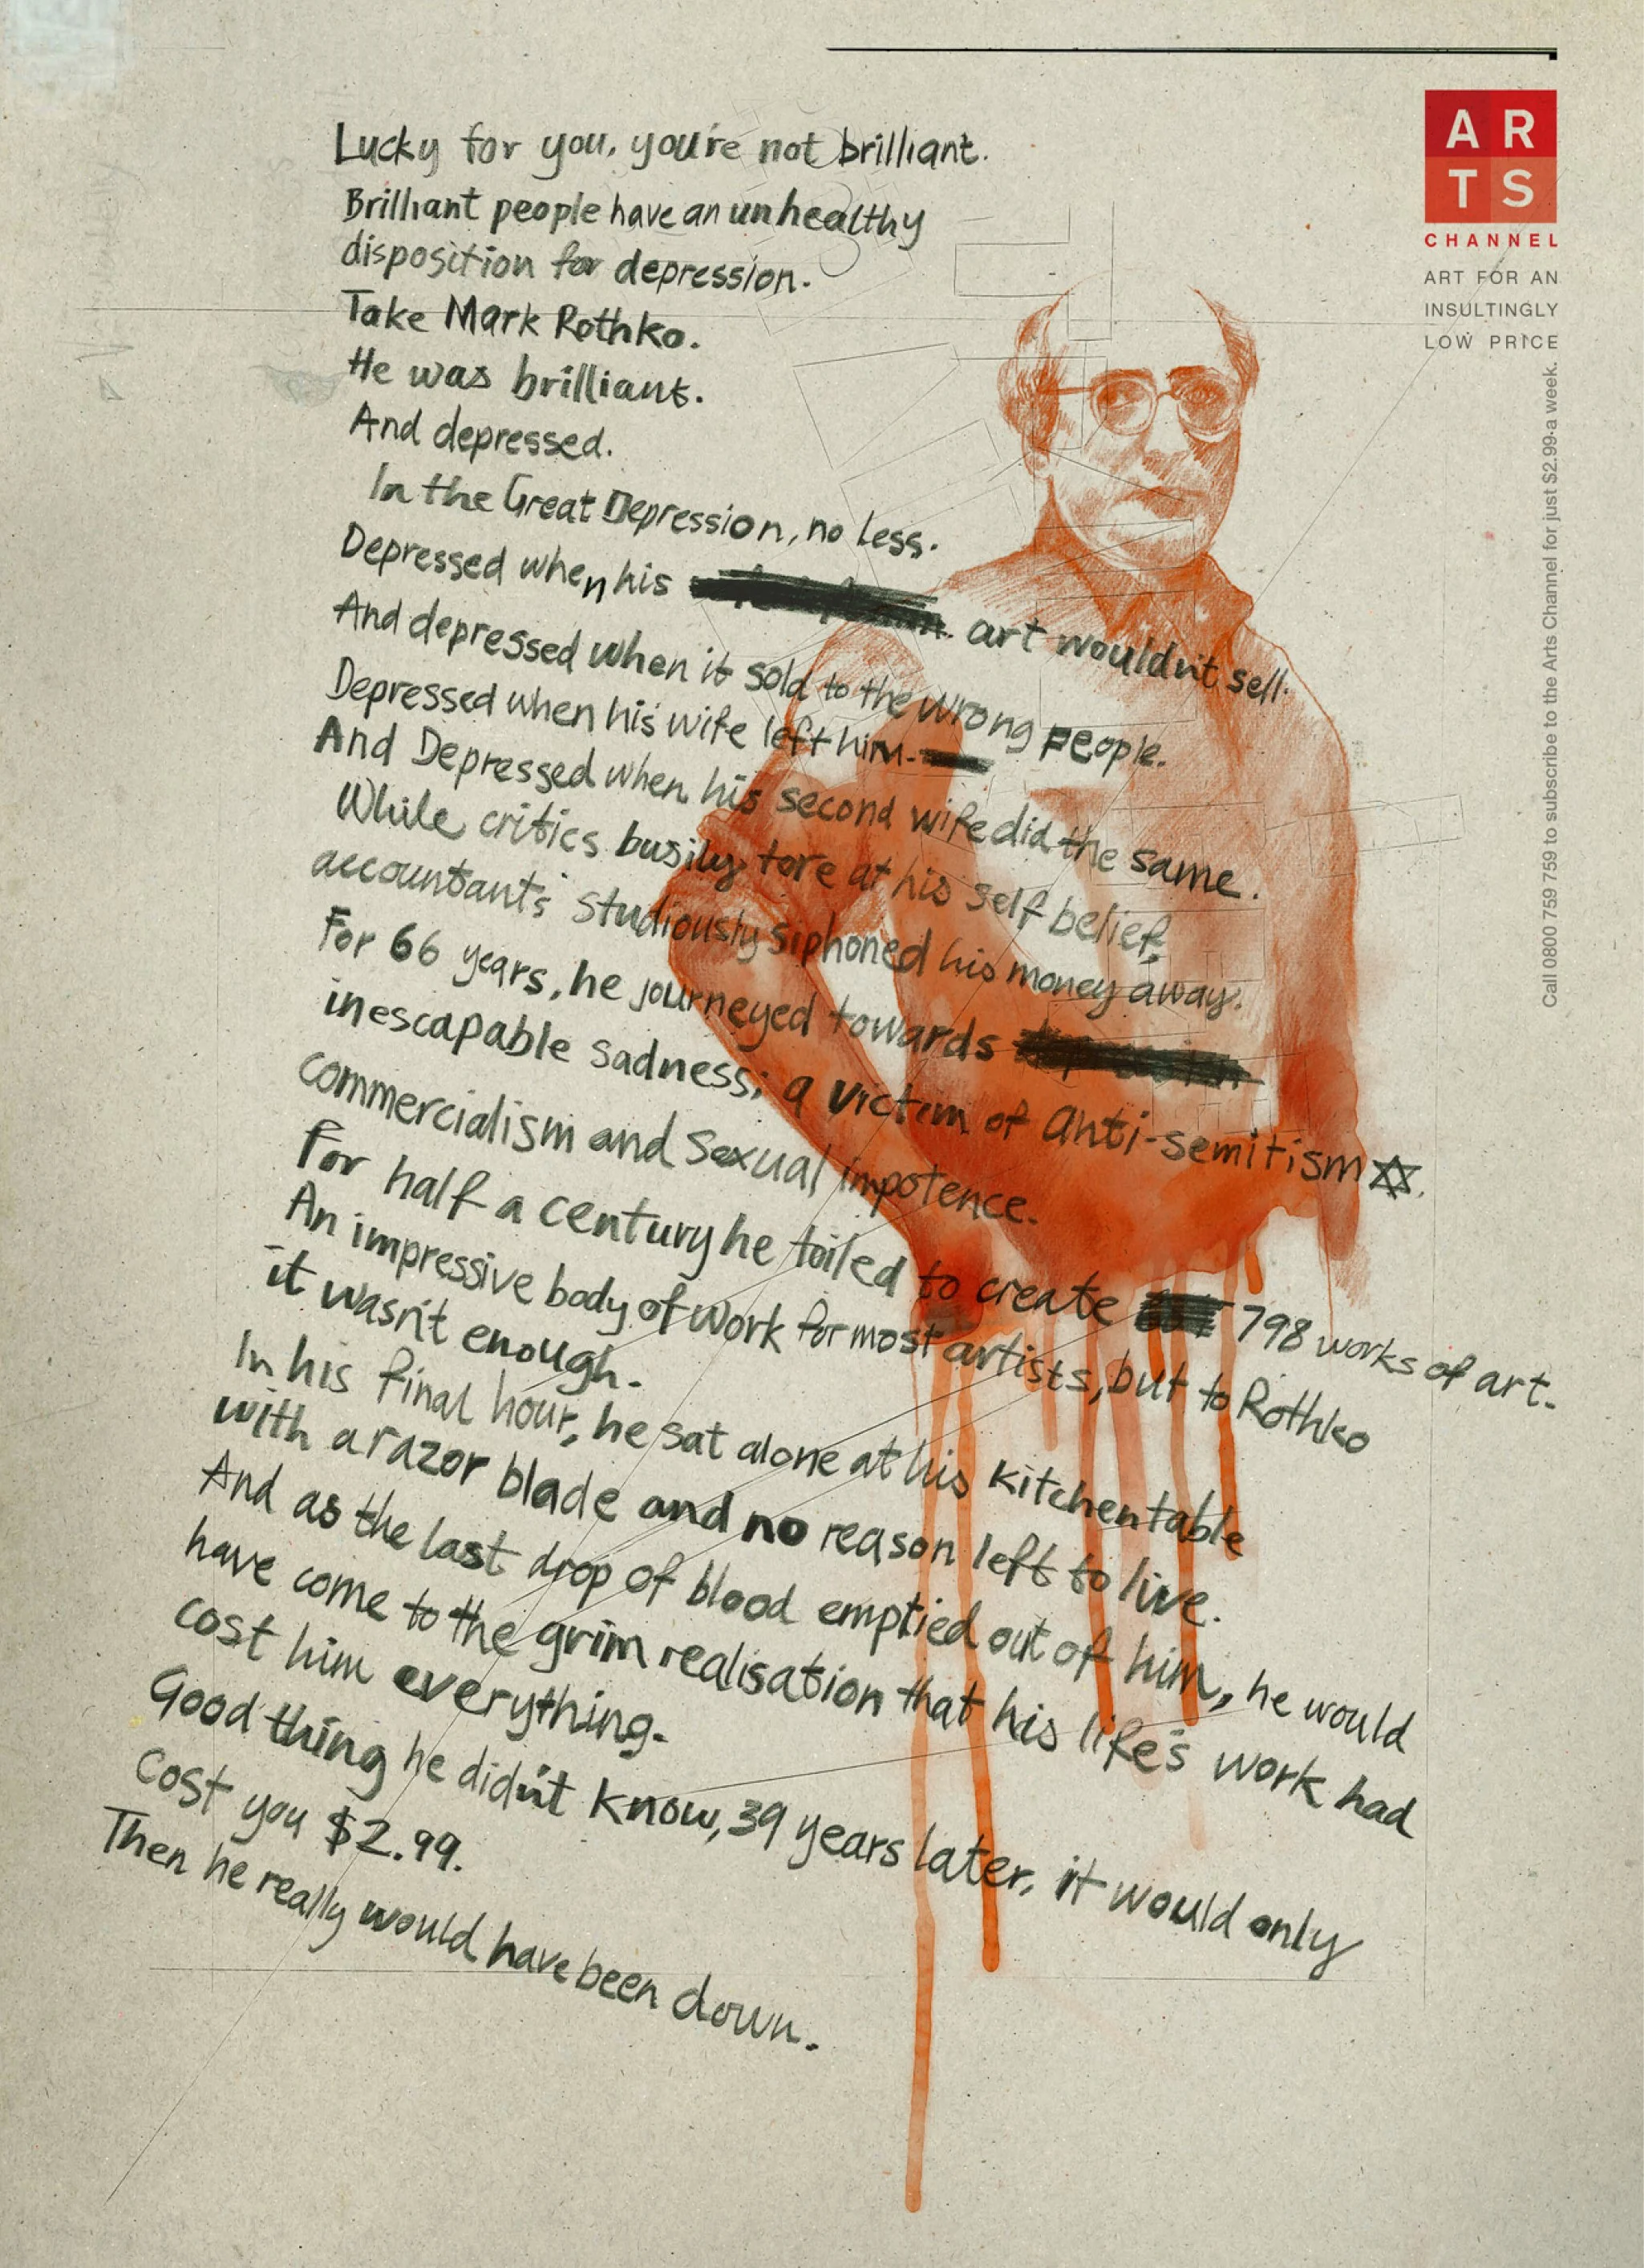 Lucky for you, you're not brilliant.
Brilliant people have an unhealthy
disposition for depression.
Take Mark Rothko.
He was brilliant.
And depressed.
In the Great Depression, no less.
Depressed when his art wouldn't sell.
And depressed when it sold to the wrong people.
Depressed when his wife left him.
And Depressed when his second wife did the same.
While critics busily tore at his self belief,
accountants studiously siphoned his money away.
For 66 years, he journeyed towards
inescapable sadness; a victim of anti-semitism ✡.
commercialism and sexual impotence.
For half a century he toiled to create 798 works of art.
An impressive body of work for most artists, but to Rothko
it wasn't enough.
In his final hour, he sat alone at his kitchen table
with a razor blade and no reason left to live.
And as the last drop of blood emptied out of him, he would
have come to the grim realisation that his life's work had
cost him everything.
Good thing he didn't know, 39 years later, it would only
cost you $2.99.
Then he really would have been down.
AR
TS
CHANNEL
ART FOR AN
INSULTINGLY
LOW PRICE
Call 0800 759 759 to subscribe to the Arts Channel for just $2.99 a week.